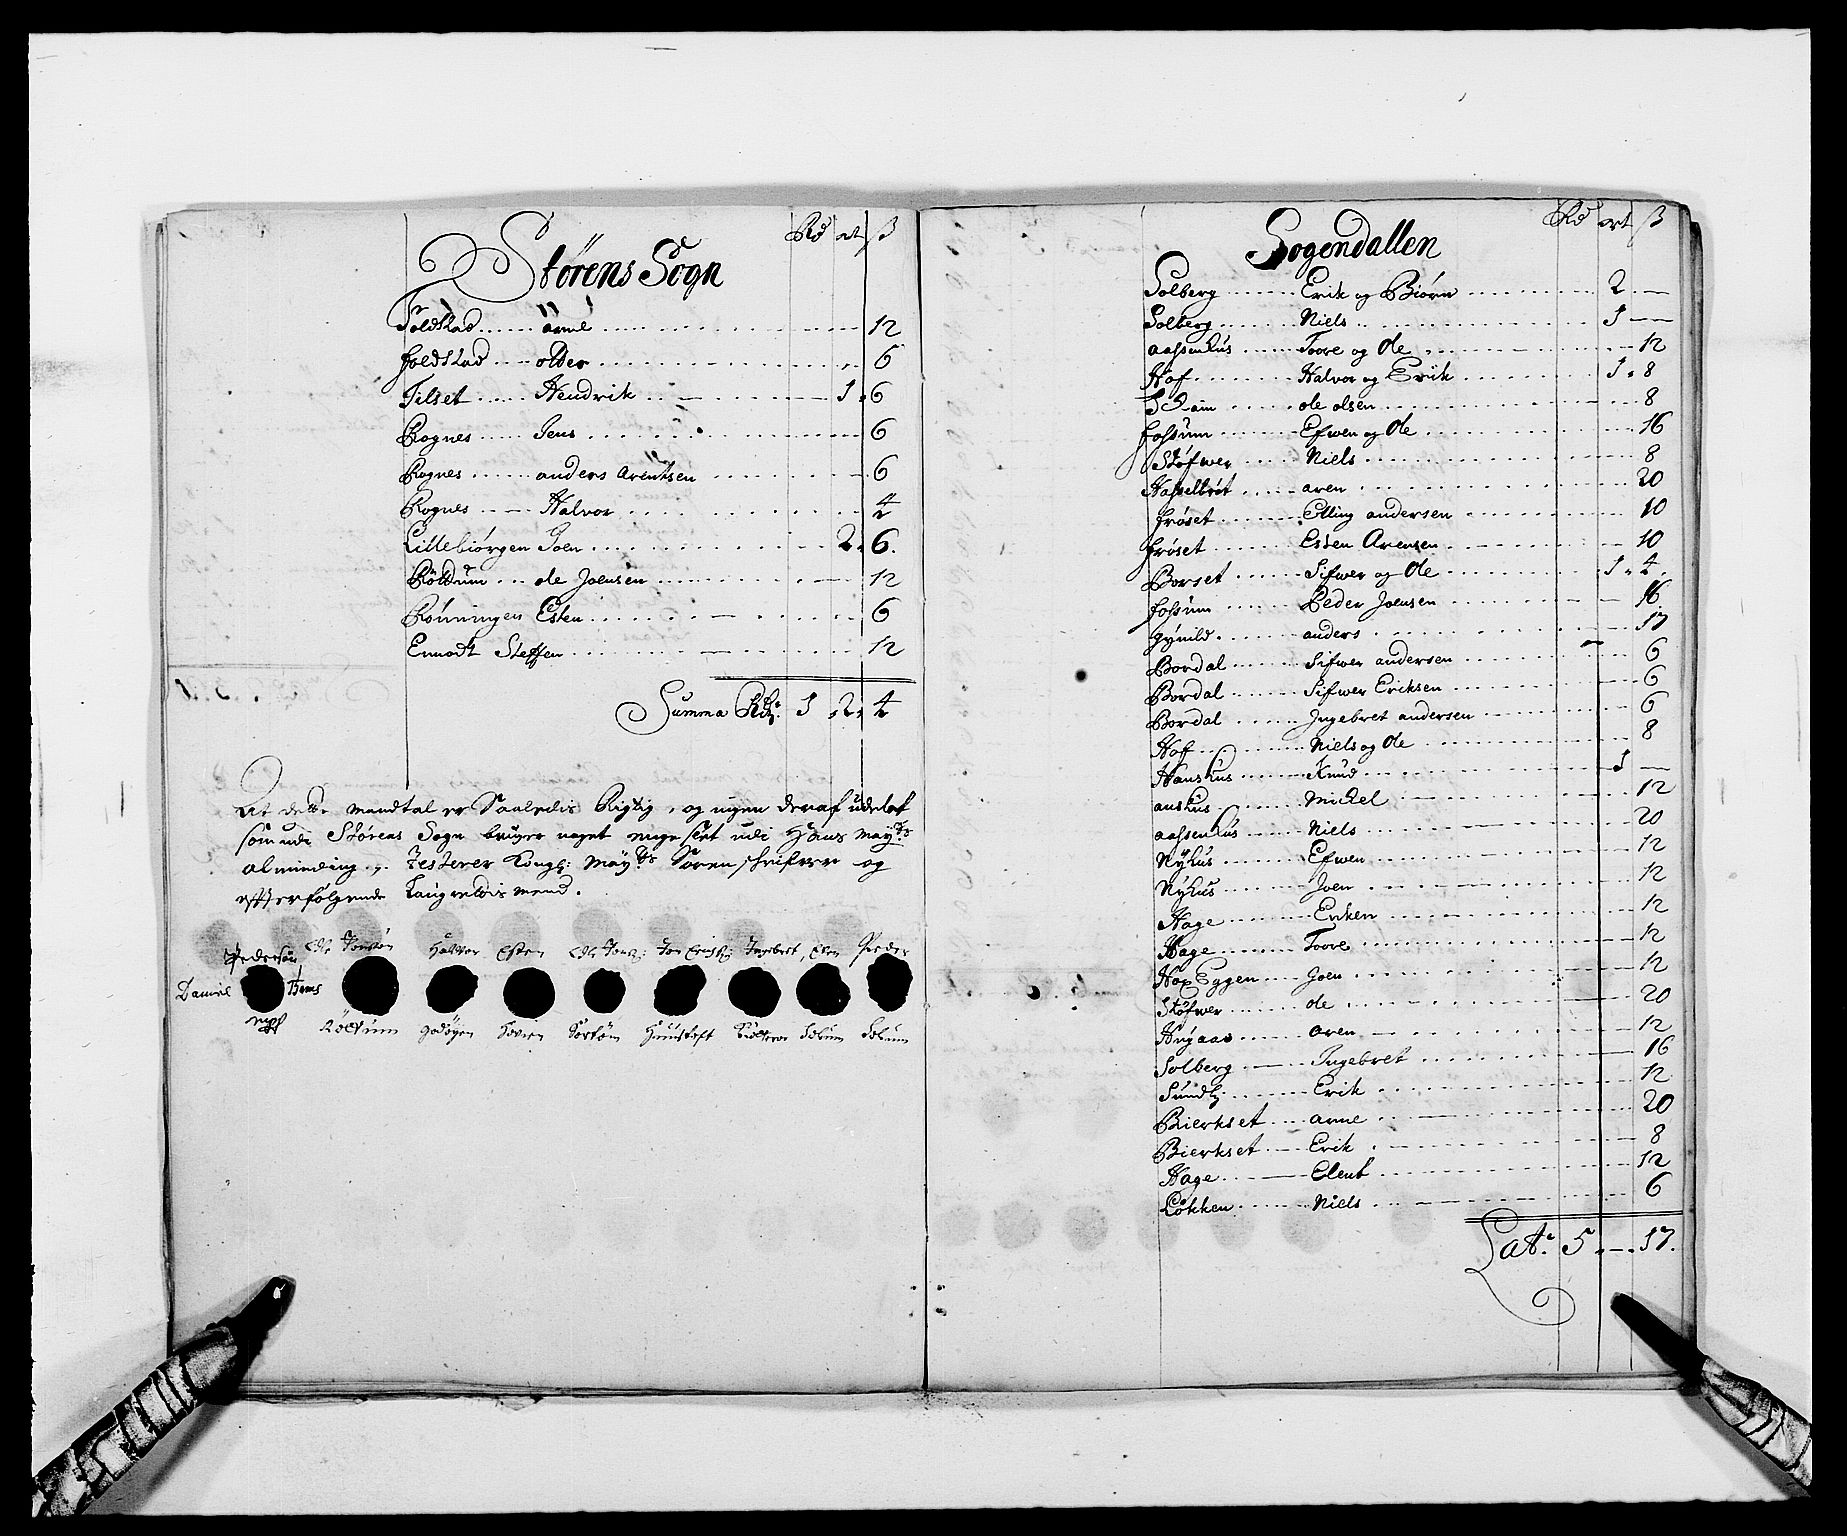 Rd ort ß
Störens Sogn
Foldstad ...... arne ...... 12
foldstad ...... older ...... 6
Tilset ...... Hendrik ...... 1. 6
Rognes ...... Jens ...... 6
Rognes ...... anders Arentsen ...... 6
Rognes ...... Halvor ...... 4
Lillebiörgen Joen ...... 2. 6.
Röldum ... ole Joensen ...... 12
Rönningen Esten ...... 6
Enmodt Steffen ...... 12
Summa Rdr. 1 . 2. 4
At dette mandtal er Saaledis Rigtig, og ingen deraf udelat
som udi Störens Sogn bruger noget engeslet udi Hans May:ts
alminding, Testerer Kongl: May:ts Sorenschrifver og
efterfölgende Laugrettis mend.
Pedersön Ole Jonsön Halvor Esten Ole Jons: Jon Erichs: Ingebret, Elen Peder
Daniel Bems
mpp Röldum godöyen Hovren Sorköm Solum Solum
Rd ort ß
Sogendallen
Solberg ...... Erik og Biörn ...... 2 —
Solberg ...... Niels ...... 1 —
aassenhus ...... Toore og Ole ...... 12
Hof ...... Halvor og Erik ...... 1. 8
ole olsen ...... 8
fossum ...... Efwen og Ole ...... 16
Stöfwer ...... Niels ...... 8
Hasselbret ...... aren ...... 20
fröset ...... Elling andersen ...... 10
fröset ...... Esten Arensen ...... 10
Borset ...... Sifwer og Ole ...... 1. 4.
fossum ...... Peder Joensen ...... 16
gynild. ...... anders ...... 17
Bordal ...... Sifwer andersen ...... 6
Bordal ...... Sifwer Eriksen ...... 6
Bordal ...... Ingebret andersen ...... 6
Hof ...... Niels og Ole ...... 8
Hanshus ...... Knud ...... 1 —
aushus ...... Mickel ...... 12
aassenhus ...... Niels ...... 20
Nyhus ...... Efwen ...... 12
Nyhus ...... Joen ...... 12
Hage ...... Enken ...... 12
Hage ...... Toore ...... 12
Hax Eggen ...... Joen ...... 12
Stöfwer ...... ole ...... 20
Hugaas ...... aren ...... 12
Solberg ...... Ingebret ...... 16
Sundli ...... Erik ...... 12
Bierkset ...... arne ...... 20
Bierkset ...... Erik ...... 8
Hage ...... Elent ...... 12
Lökken ...... Niels ...... 6
Lat: 5 . — . 17.